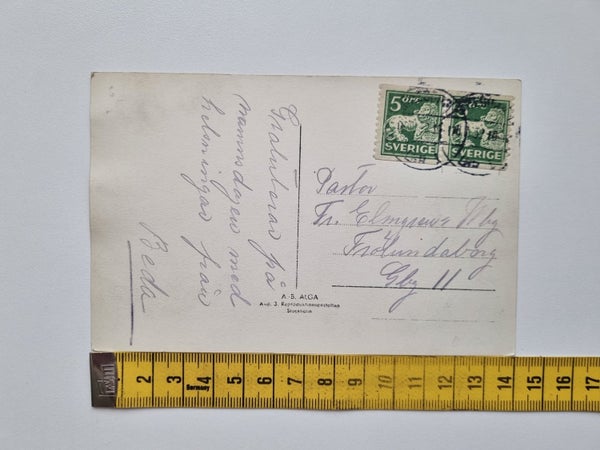 Gratulerar på
namnsdagen med
helsningar från
Beda
5 ÖRE
SVERIGE
SVERIGE
Pastor
Fr. Elmgren
Frölundaborg
Gbg 11
A.-B. ALGA
Avd. J. Reproduktionsanstalten
Stockholm
Germany
2 3 4 5 6 7 8 9 10 11 12 13 14 15 16 17